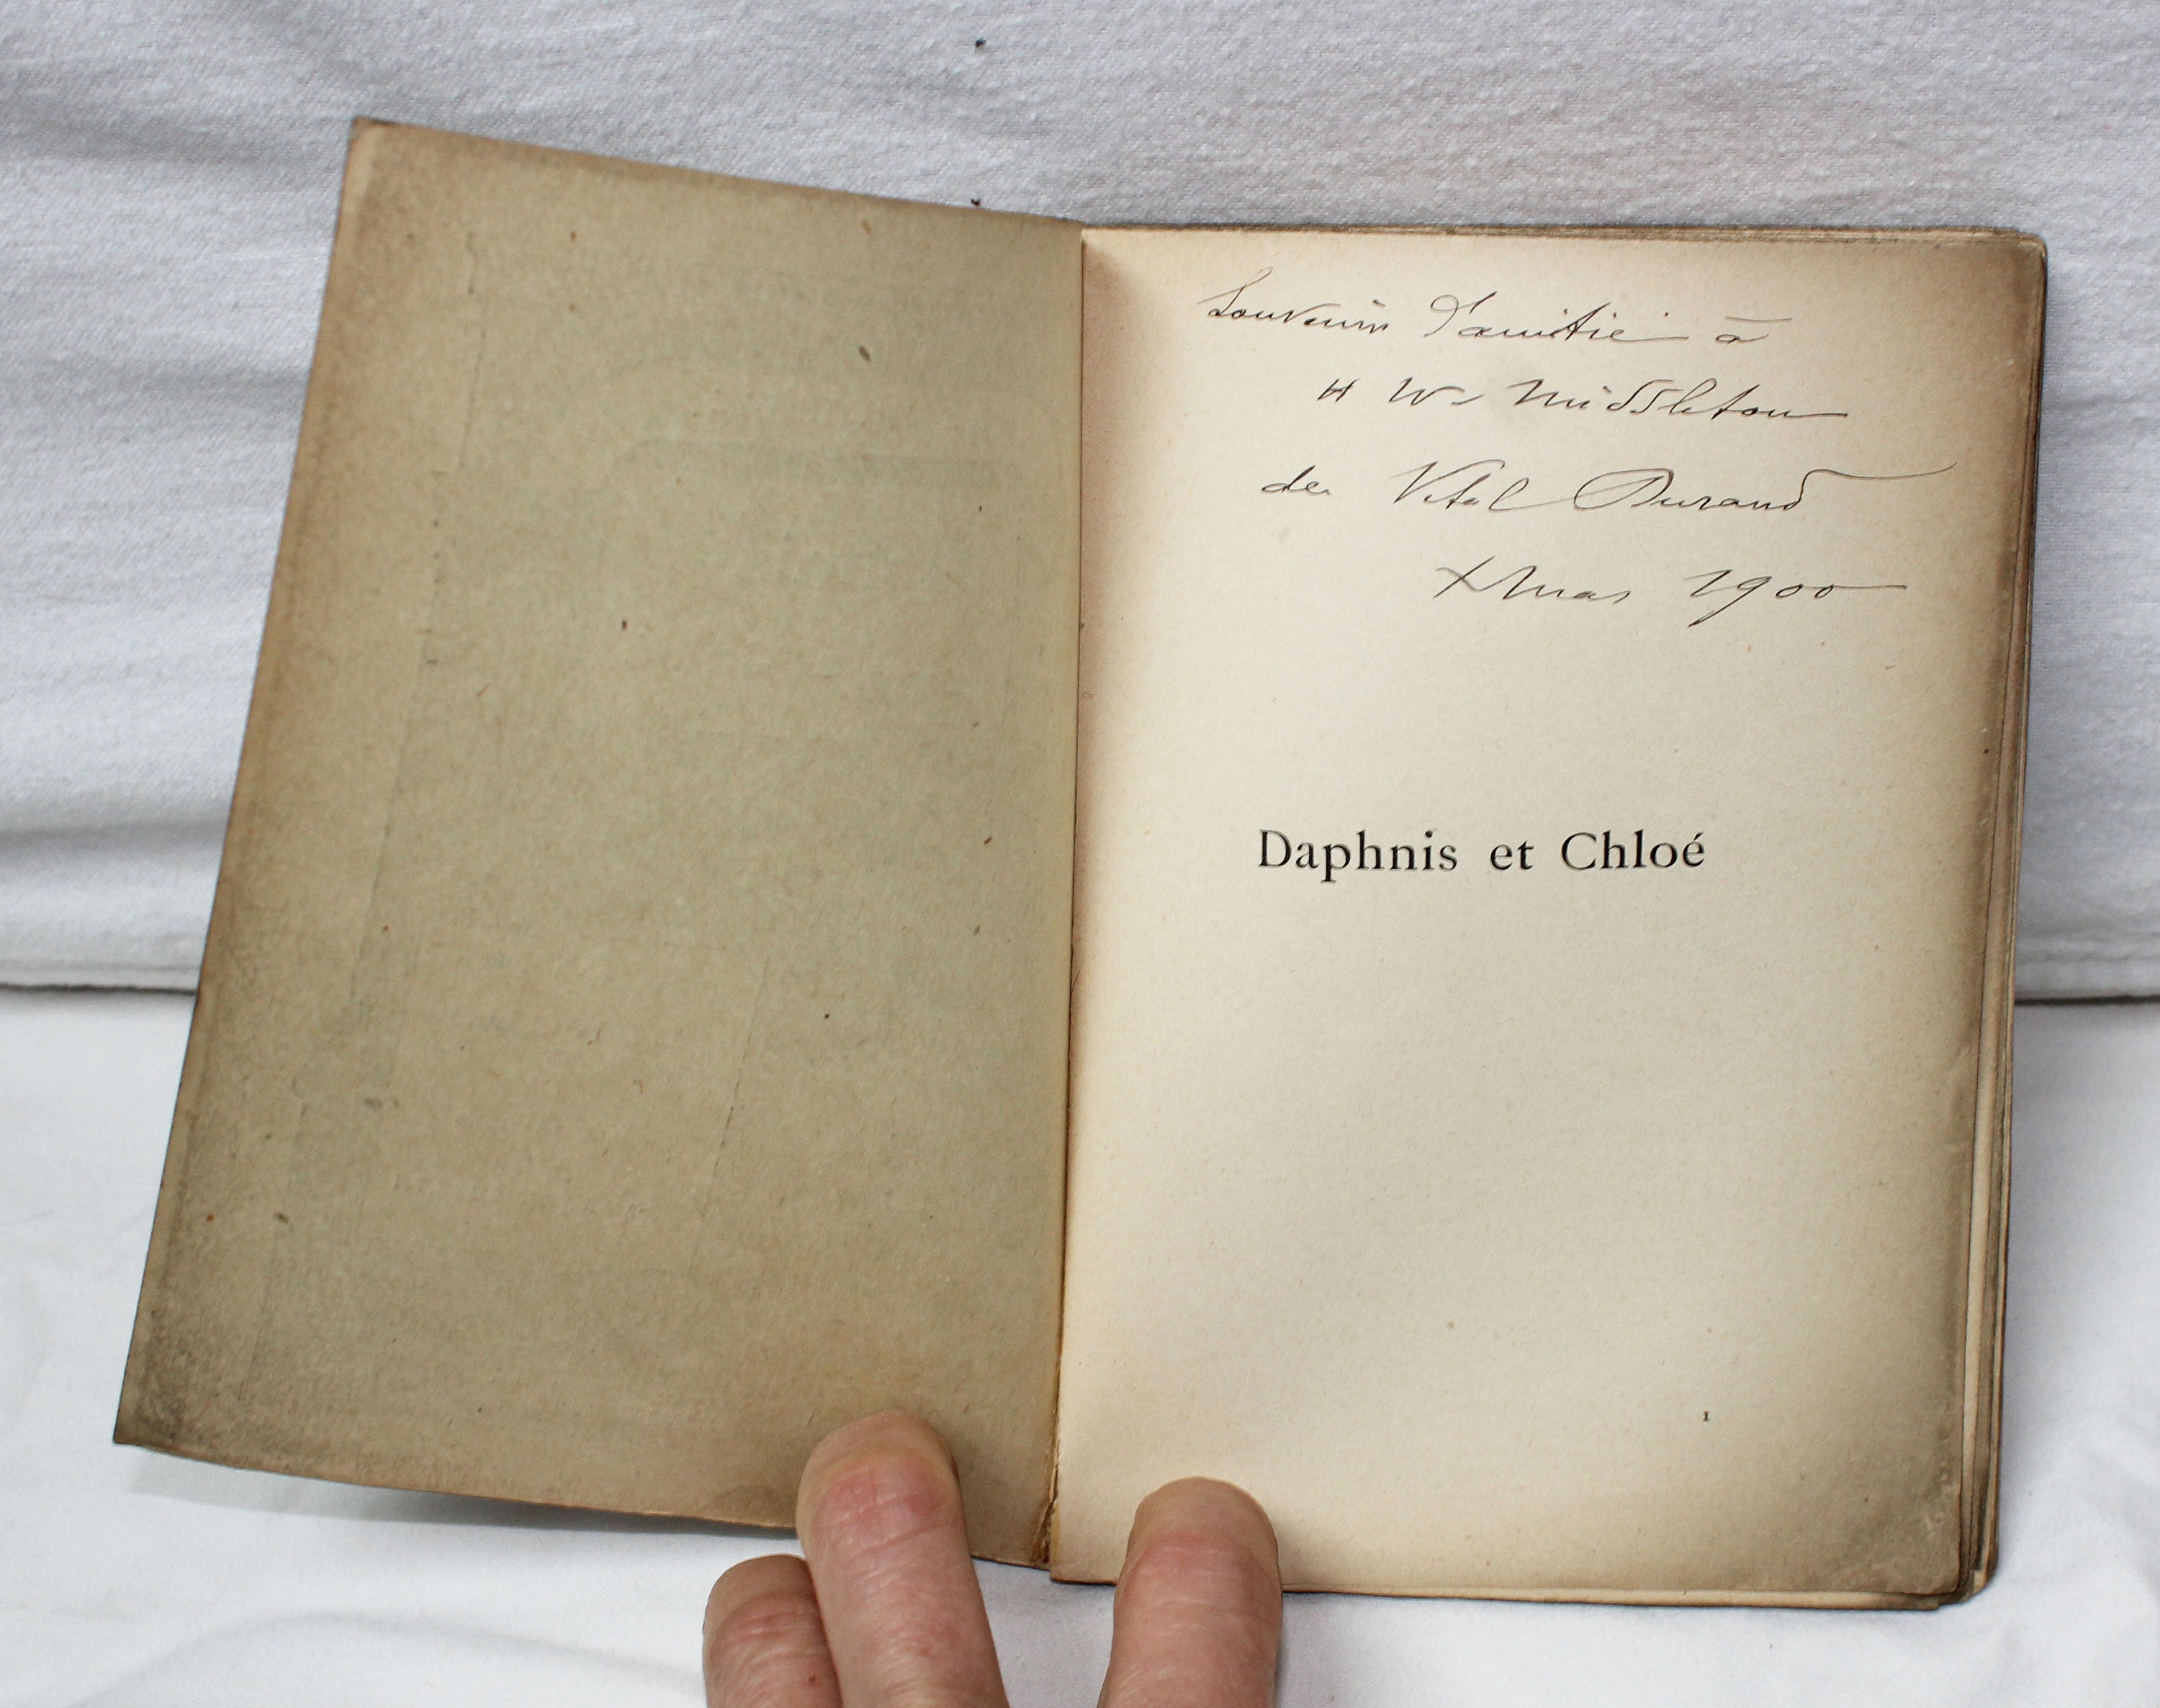 Souvenir d'amitié à
H W. Middleton
de Vital Durand
Xmas 1900
Daphnis et Chloé
1